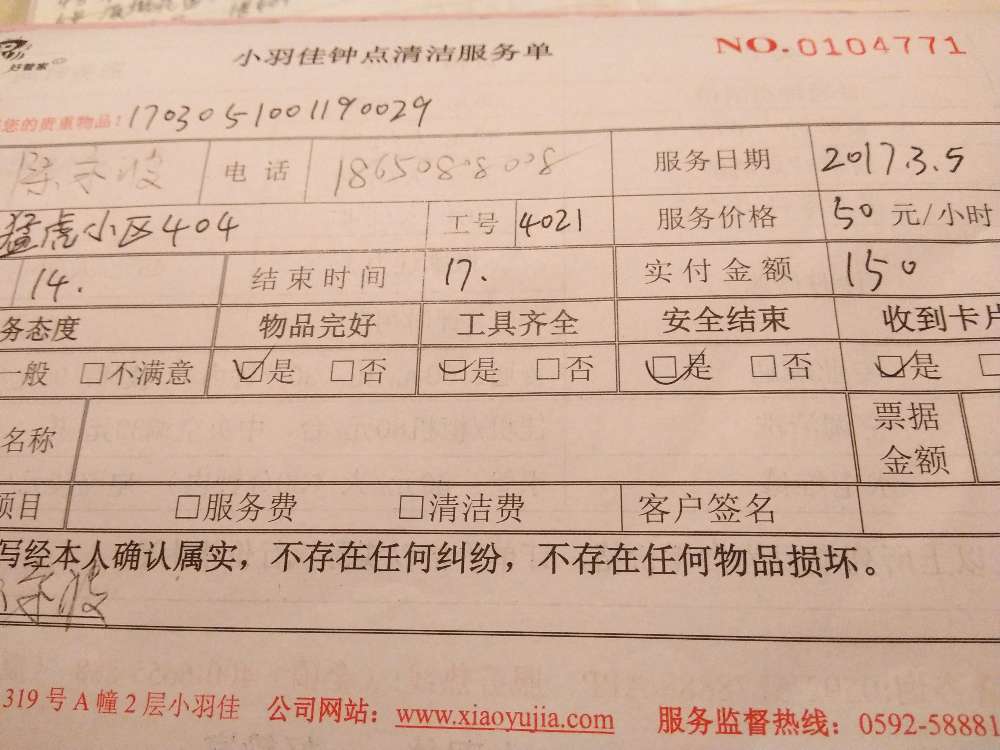 好管家 小羽佳钟点清洁服务单 NO.0104771
您的贵重物品！1703051001190029
电话 18650888008 服务日期 2017.3.5
猛虎小区404 工号 4021 服务价格 50 元/小时
14. 结束时间 17. 实付金额 150
务态度 物品完好 工具齐全 安全结束 收到卡片
一般 □不满意 ☑是 □否 ☑是 □否 ☑是 □否 ☑是 □
名称 票据金额
项目 □服务费 □清洁费 客户签名
写经本人确认属实，不存在任何纠纷，不存在任何物品损坏。
319号A幢2层小羽佳 公司网站：www.xiaoyujia.com 服务监督热线：0592-58881